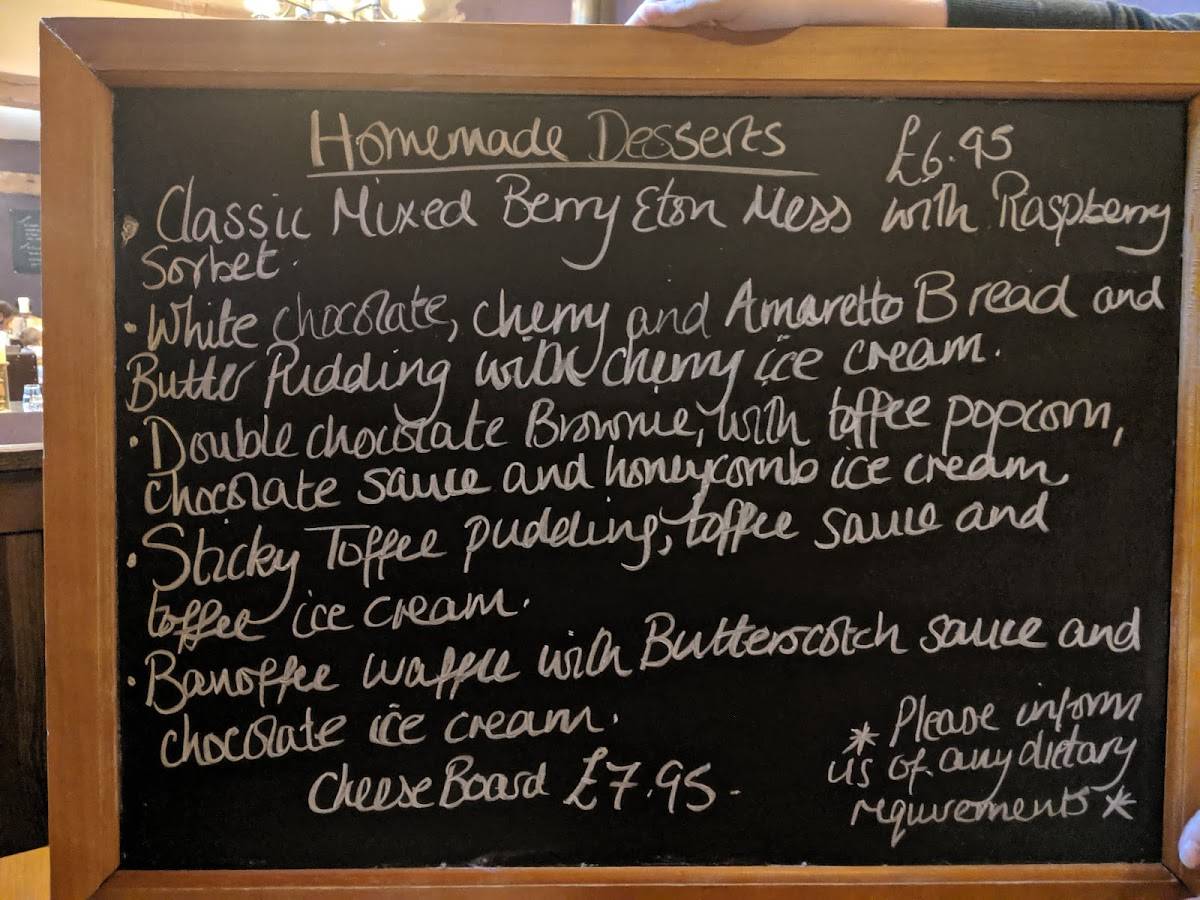 Homemade Desserts £6.95
· Classic Mixed Berry Eton Mess with Raspberry
Sorbet.
· White chocolate, cherry and Amaretto Bread and
Butter Pudding with cherry ice cream.
· Double chocolate Brownie, with toffee popcorn,
chocolate sauce and honeycomb ice cream
· Sticky Toffee pudding, toffee sauce and
toffee ice cream.
· Banoffee waffle with Butterscotch sauce and
chocolate ice cream.
Cheese Board £7.95.
* Please inform
us of any dietary
requirements *